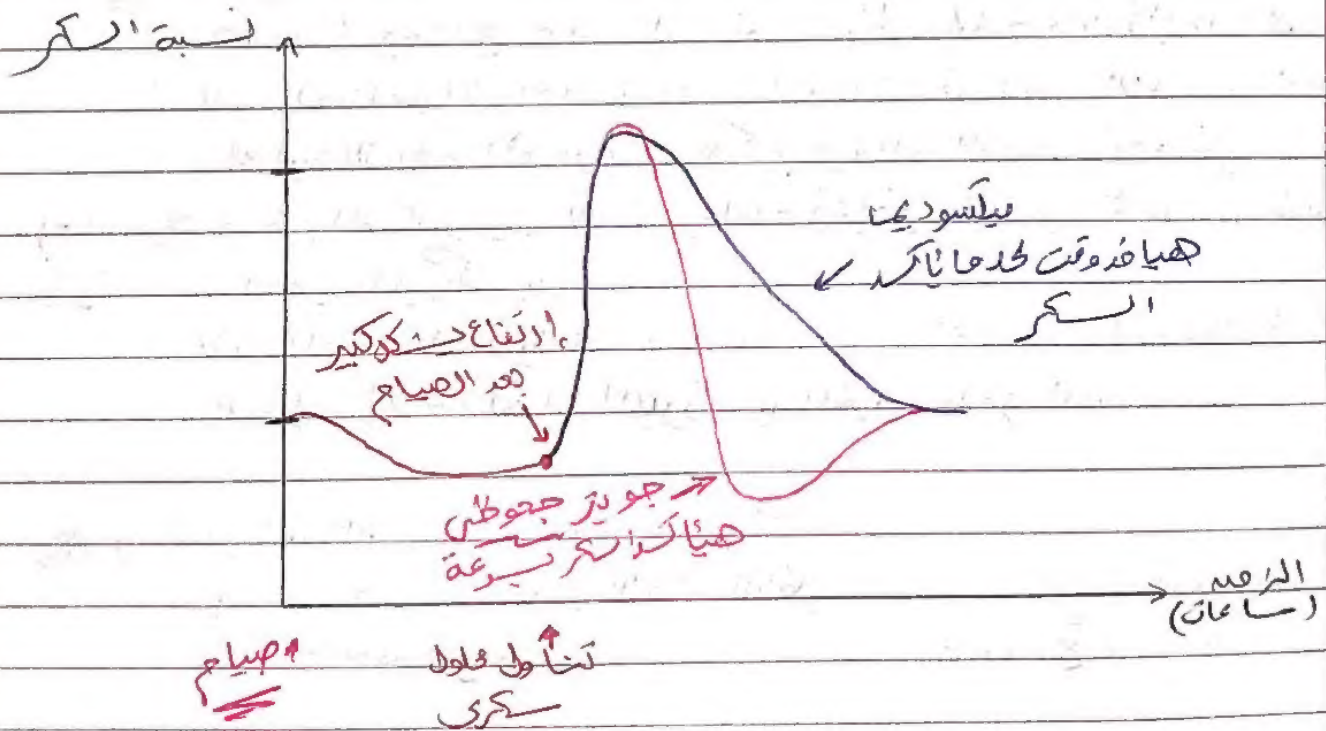 نسبة السكر
ميكسوديما
هياخد وقت لحد ما ياكسد
السكر
إرتفاع بشكل كبير
بعد الصيام
جويتر جحوظى
هيأكسد السكر بسرعة
الزمن
(ساعات)
صيام
تناول محلول
سكرى